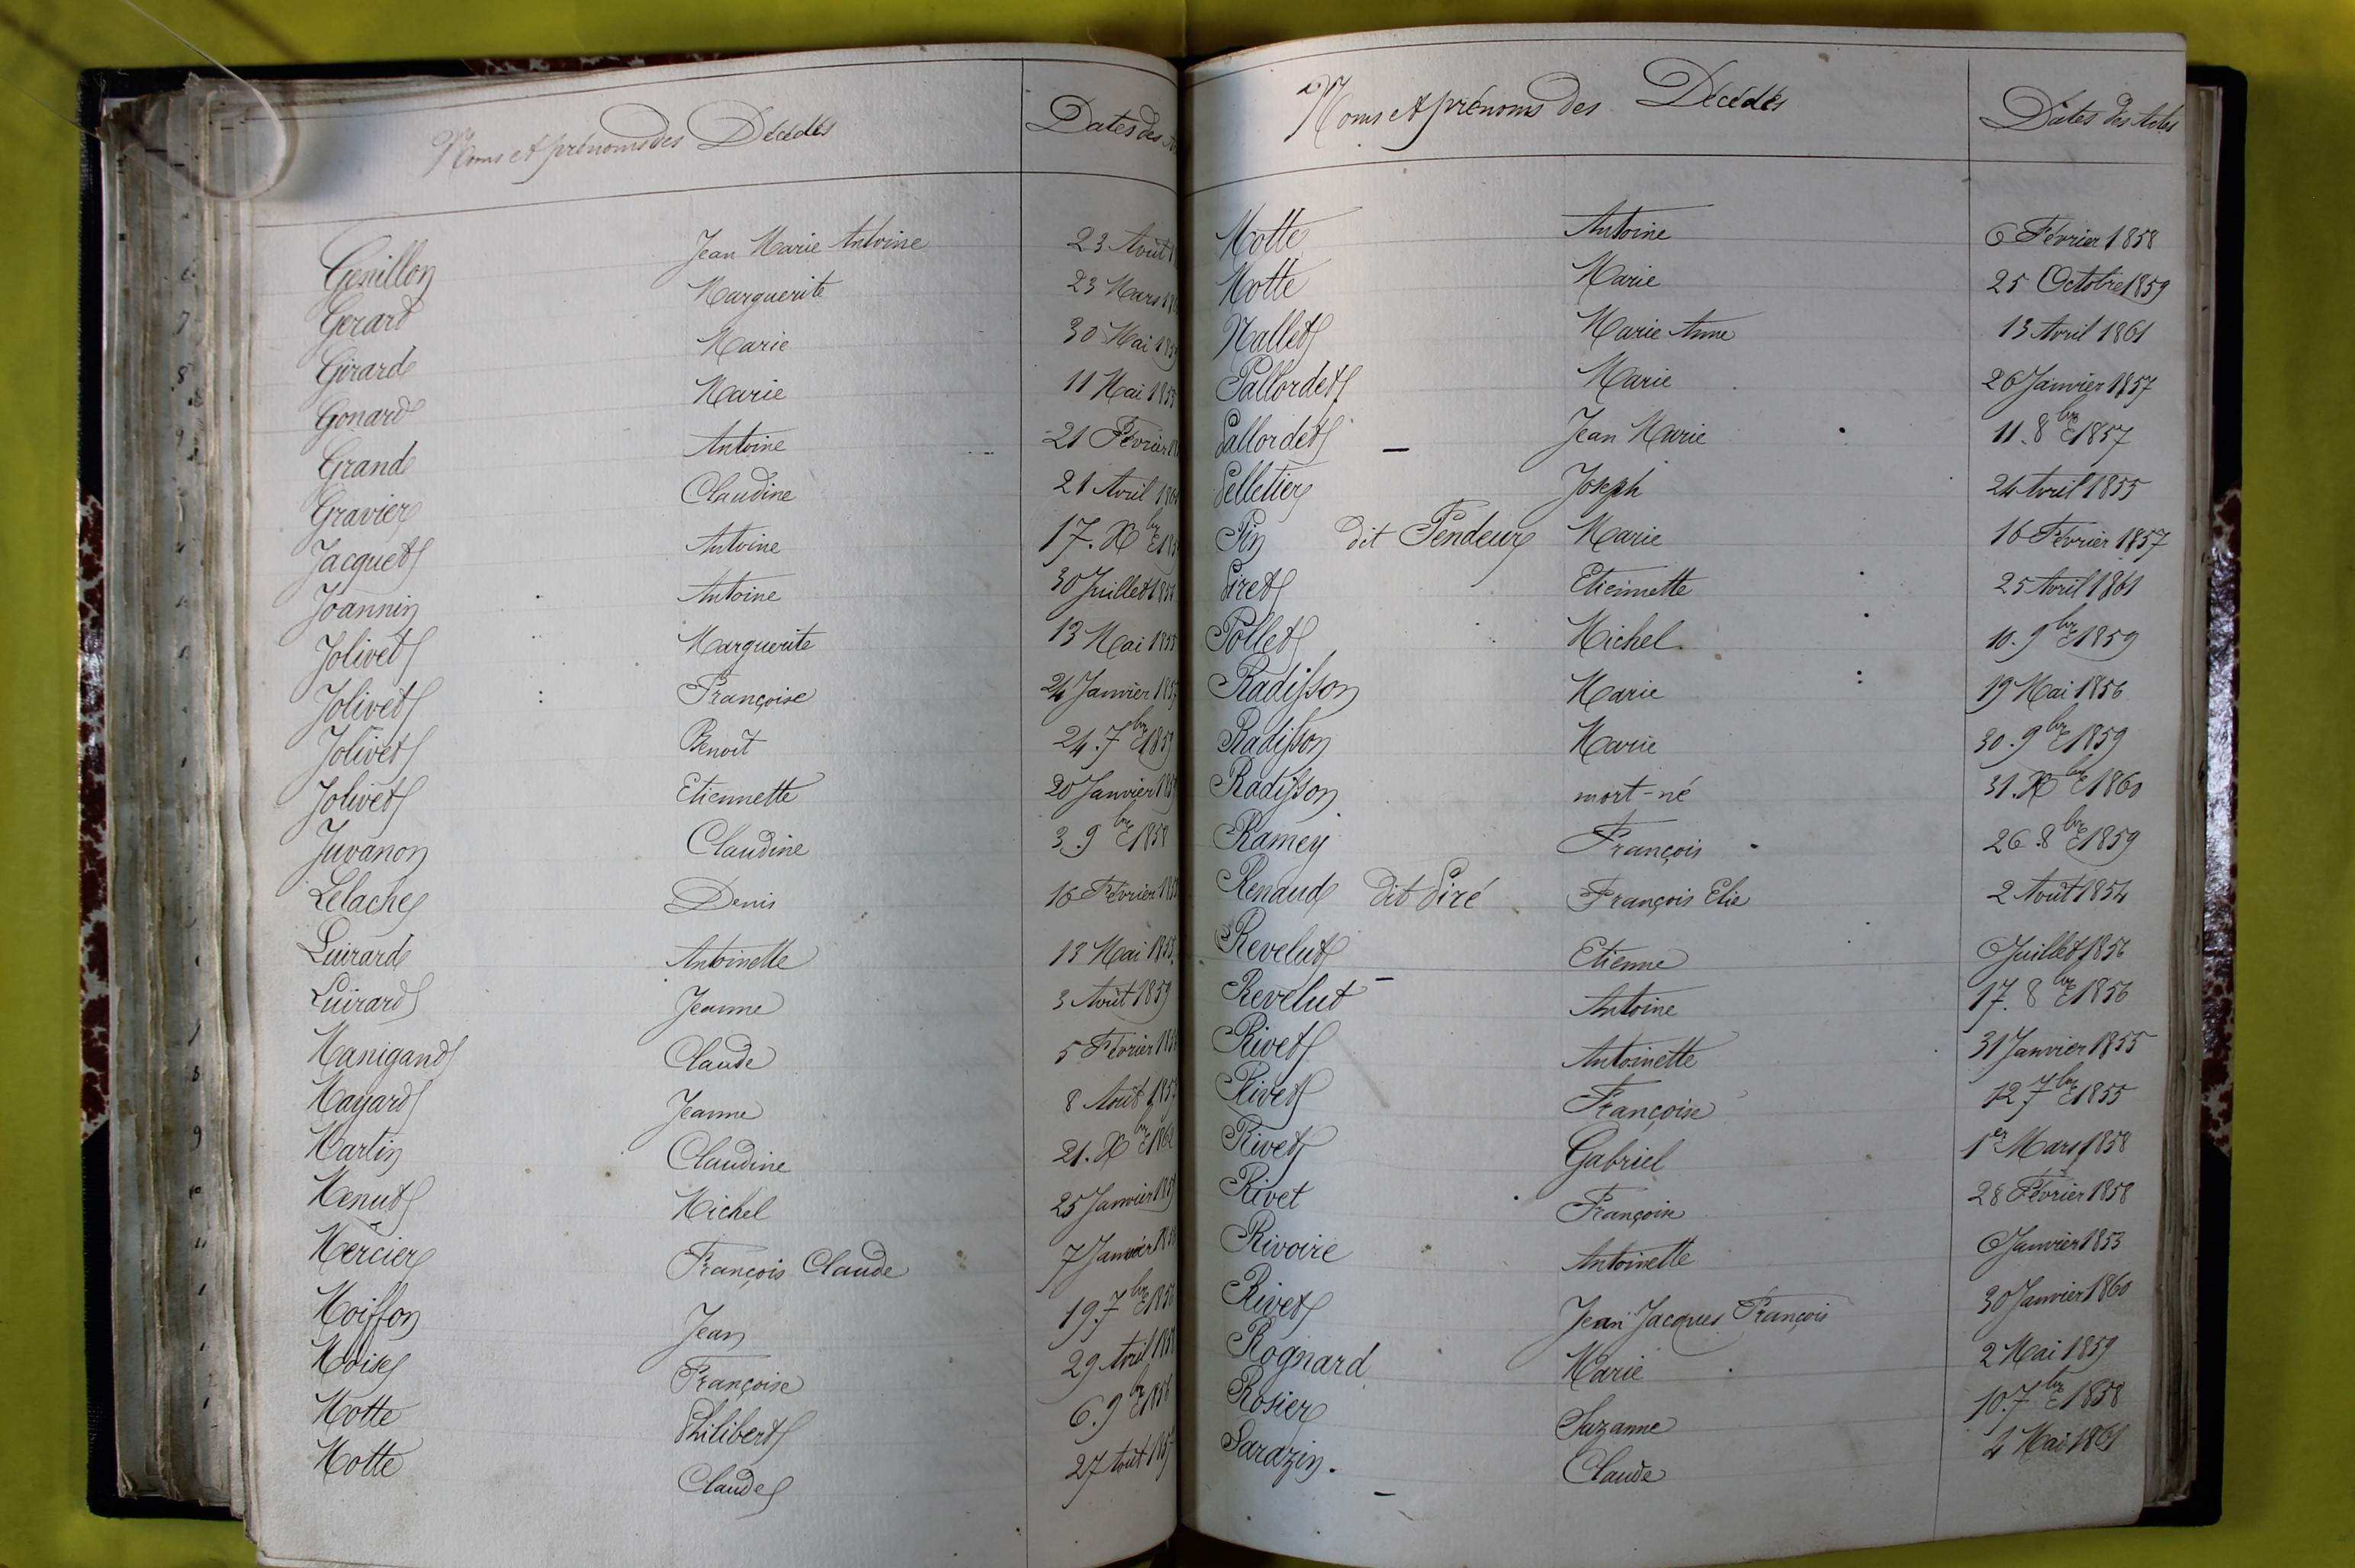 Noms et prénoms des Décédés Dates des
Genillon Jean Marie Antoine 23 Août
Gerard Marguerite 23 Mars
Girard Marie 30 Mai
Gonard Marie 11 Mai
Grand Antoine 21 Février
Gravier Claudine 21 Avril
Jacquet Antoine 17. Xbre
Joannin Antoine 30 Juillet
Jolivet Marguerite 13 Mai 1855
Jolivet Françoise 24 Janvier
Jolivet Benoit 24. 7bre 1859
Jolivet Etiennette 20 Janvier
Juvanon Claudine 3. 9bre 1858
Lelache Denis 16 Février
Luirard Antoinette 13 Mai 1855
Luirard Jeanne 3 Août 1859
Manigand Claude 5 Février
Mayard Jeanne 8 Août
Martin Claudine 21. Xbre 1862
Menut Michel 25 Janvier
Mercier François Claude 7 Janvier
Moiffon Jean 19. 7bre 1856
Moise Françoise 29 Avril
Motte Philibert 6. 9bre 1856
Motte Claude 27 Août
Noms et prénoms des Décédés Dates des Actes
Motte Antoine 6 Février 1858
Motte Marie 25 Octobre 1859
Nallet Marie Anne 13 Avril 1861
Pallordet Marie 26 Janvier 1857
Pallordet Jean Marie 11. 8bre 1857
Pelletier Joseph 24 Avril 1855
Pin dit Pendeur Marie 16 Février 1857
Piret Etiennette 25 Avril 1861
Pollet Michel 10. 9bre 1859
Radisson Marie 19 Mai 1856
Radisson Marie 30. 9bre 1859
Radisson mort-né 31. Xbre 1860
Ramey François 26. 8bre 1859
Renaud dit Piré François Elie 2 Août 1854
Revelut Etienne 6 Juillet 1856
Revelut Antoine 17. 8bre 1856
Rivet Antoinette 31 Janvier 1855
Rivet Françoise 12 7bre 1855
Rivet Gabriel 1er Mars 1858
Rivet Françoise 28 Février 1858
Rivoire Antoinette 6 Janvier 1853
Rivet Jean Jacques François 30 Janvier 1860
Rognard Marie 2 Mai 1859
Rosier Suzanne 10. 7bre 1858
Sarazin. Claude 4 Mai 1861